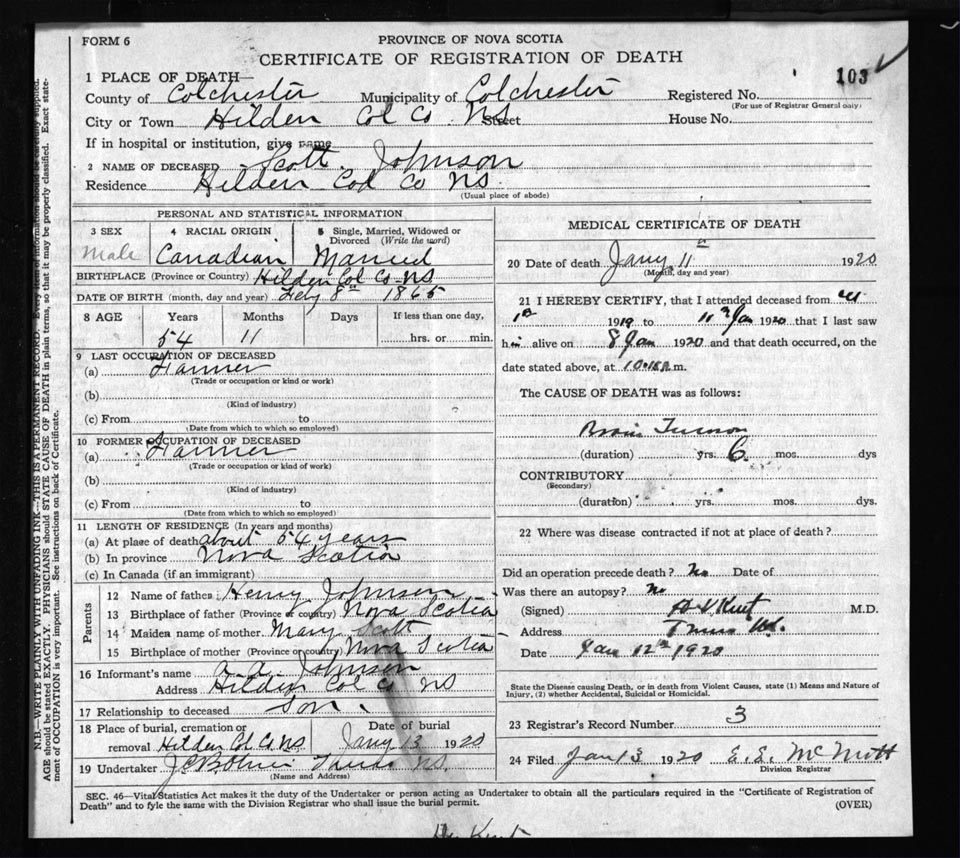 FORM 6
PROVINCE OF NOVA SCOTIA
CERTIFICATE OF REGISTRATION OF DEATH
103
1 PLACE OF DEATH—
County of Colchester Municipality of Colchester Registered No.
(For use of Registrar General only)
City or Town Hilden Col Co NS Street House No.
If in hospital or institution, give name
2 NAME OF DECEASED Scott Johnson
Residence Hilden Col Co NS
(Usual place of abode)
PERSONAL AND STATISTICAL INFORMATION
3 SEX 4 RACIAL ORIGIN 5 Single, Married, Widowed or Divorced (Write the word)
Male Canadian Married
BIRTHPLACE (Province or Country) Hilden Col Co NS
DATE OF BIRTH (month, day and year) Feby 8th 1865
8 AGE Years Months Days If less than one day,
54 11 hrs. or min.
9 LAST OCCUPATION OF DECEASED
(a) Farmer
(Trade or occupation or kind or work)
(b)
(Kind of industry)
(c) From to
(Date from which to which so employed)
10 FORMER OCCUPATION OF DECEASED
(a) Farmer
(Trade or occupation or kind of work)
(b)
(Kind of industry)
(c) From to
(Date from which to which so employed)
11 LENGTH OF RESIDENCE (In years and months)
(a) At place of death about 54 years
(b) In province Nova Scotia
(c) In Canada (if an immigrant)
Parents
12 Name of father Henry Johnson
13 Birthplace of father (Province or country) Nova Scotia
14 Maiden name of mother Mary Scott
15 Birthplace of mother (Province or country) Nova Scotia
16 Informant's name A. A. Johnson
Address Hilden Col Co NS
17 Relationship to deceased Son
18 Place of burial, cremation or Date of burial
removal Hilden Col Co NS Jany 13 1920
19 Undertaker Truro NS.
(Name and Address)
MEDICAL CERTIFICATE OF DEATH
20 Date of death Jany 11th 1920
(Month, day and year)
21 I HEREBY CERTIFY, that I attended deceased from
1919 to 11th Jan 1920 that I last saw
him alive on 8 Jan 1920 and that death occurred, on the
date stated above, at m.
The CAUSE OF DEATH was as follows:
Brain Tumor
(duration) yrs. 6 mos. dys
CONTRIBUTORY
(Secondary)
(duration) yrs. mos. dys.
22 Where was disease contracted if not at place of death?
Did an operation precede death? No Date of
Was there an autopsy? No
(Signed) H V Kent M.D.
Address Truro N.S.
Date Jan 12th 1920
State the Disease causing Death, or in death from Violent Causes, state (1) Means and Nature of
Injury, (2) whether Accidental, Suicidal or Homicidal.
23 Registrar's Record Number 3
24 Filed Jan 13 1920 E. E. McNutt
Division Registrar
SEC. 46—Vital Statistics Act makes it the duty of the Undertaker or person acting as Undertaker to obtain all the particulars required in the "Certificate of Registration of
Death" and to fyle the same with the Division Registrar who shall issue the burial permit. (OVER)
Kent
N.B.—WRITE PLAINLY WITH UNFADING INK—THIS IS A PERMANENT RECORD. Every item of information should be carefully supplied.
AGE should be stated EXACTLY. PHYSICIANS should STATE CAUSE OF DEATH in plain terms, so that it may be properly classified. Exact state-
ment of OCCUPATION is very important. See instructions on back of Certificate.